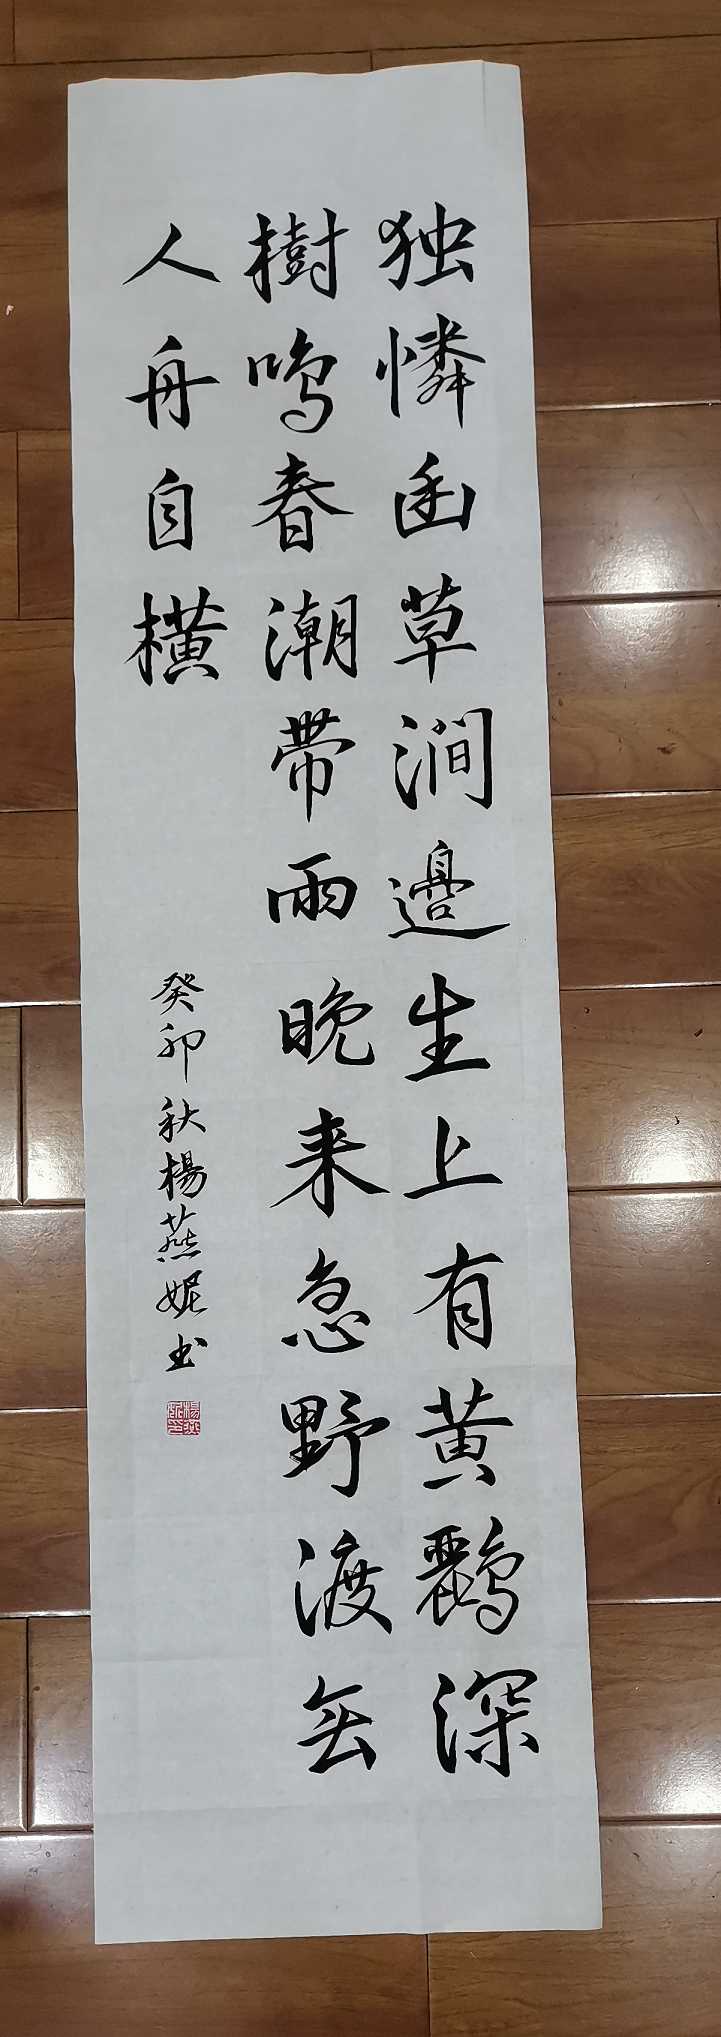 独憐幽草澗邊生上有黄鸝深
樹鳴春潮帶雨晚来急野渡無
人舟自橫
癸卯秋楊燕妮书
楊燕妮印